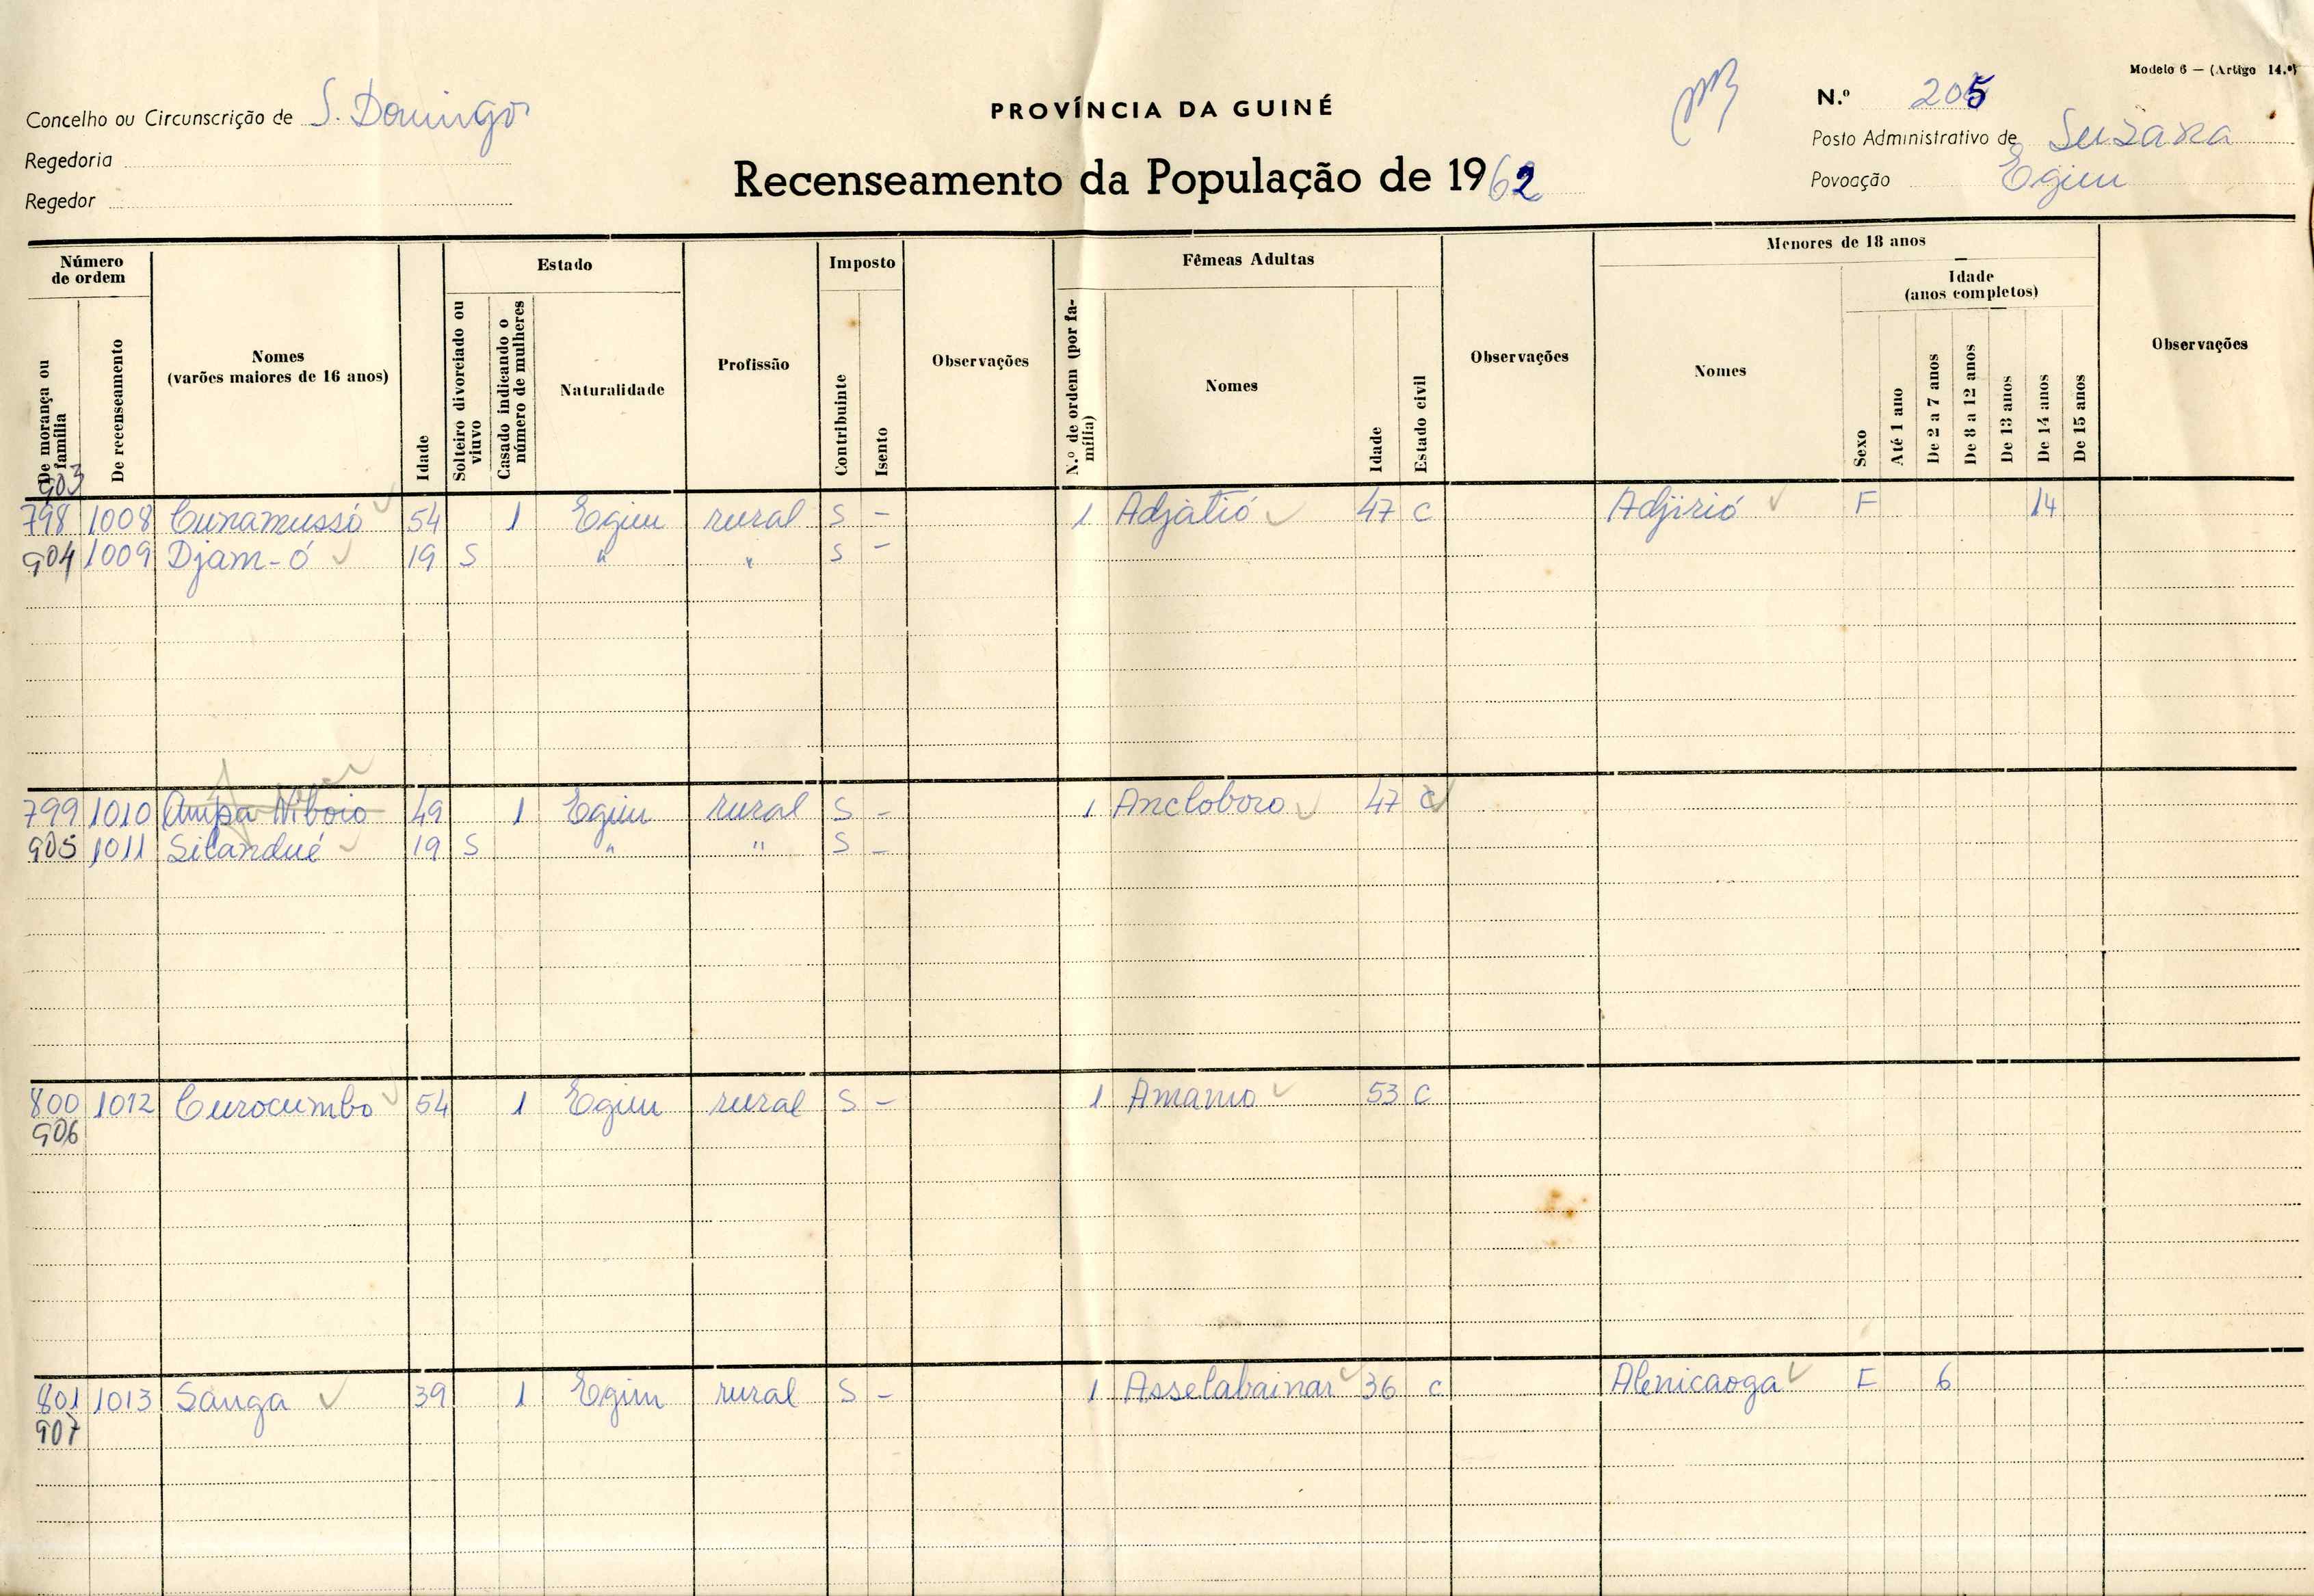 Modelo 6 — (Artigo 14.º)
Concelho ou Circunscrição de S. Domingos
PROVÍNCIA DA GUINÉ
N.º 205
Regedoria
Posto Administrativo de Suzana
Regedor
Recenseamento da População de 1962
Povoação Egim
Número de ordem
De morança ou família
De recenseamento
Nomes
(varões maiores de 16 anos)
Idade
Estado
Solteiro divorciado ou viuvo
Casado indicando o número de mulheres
Naturalidade
Profissão
Imposto
Contribuinte
Isento
Observações
Fêmeas Adultas
N.º de ordem (por família)
Nomes
Idade
Estado civil
Observações
Menores de 18 anos
Nomes
Sexo
Idade
(anos completos)
Até 1 ano
De 2 a 7 anos
De 8 a 12 anos
De 13 anos
De 14 anos
De 15 anos
Observações
903
798 1008 Cunamussó 54 1 Egim rural S - 1 Adjatió 47 C Adjirió F 14
904 1009 Djam-ó 19 S " " S -
799 1010 Ampa Niboio 49 1 Egim rural S - 1 Ancloboro 47 C
905 1011 Silandué 19 S " " S -
800 1012 Curocumbo 54 1 Egim rural S - 1 Amamo 53 C
906
801 1013 Sanga 39 1 Egim rural S - 1 Asselabainar 36 C Alenicaoga F 6
907